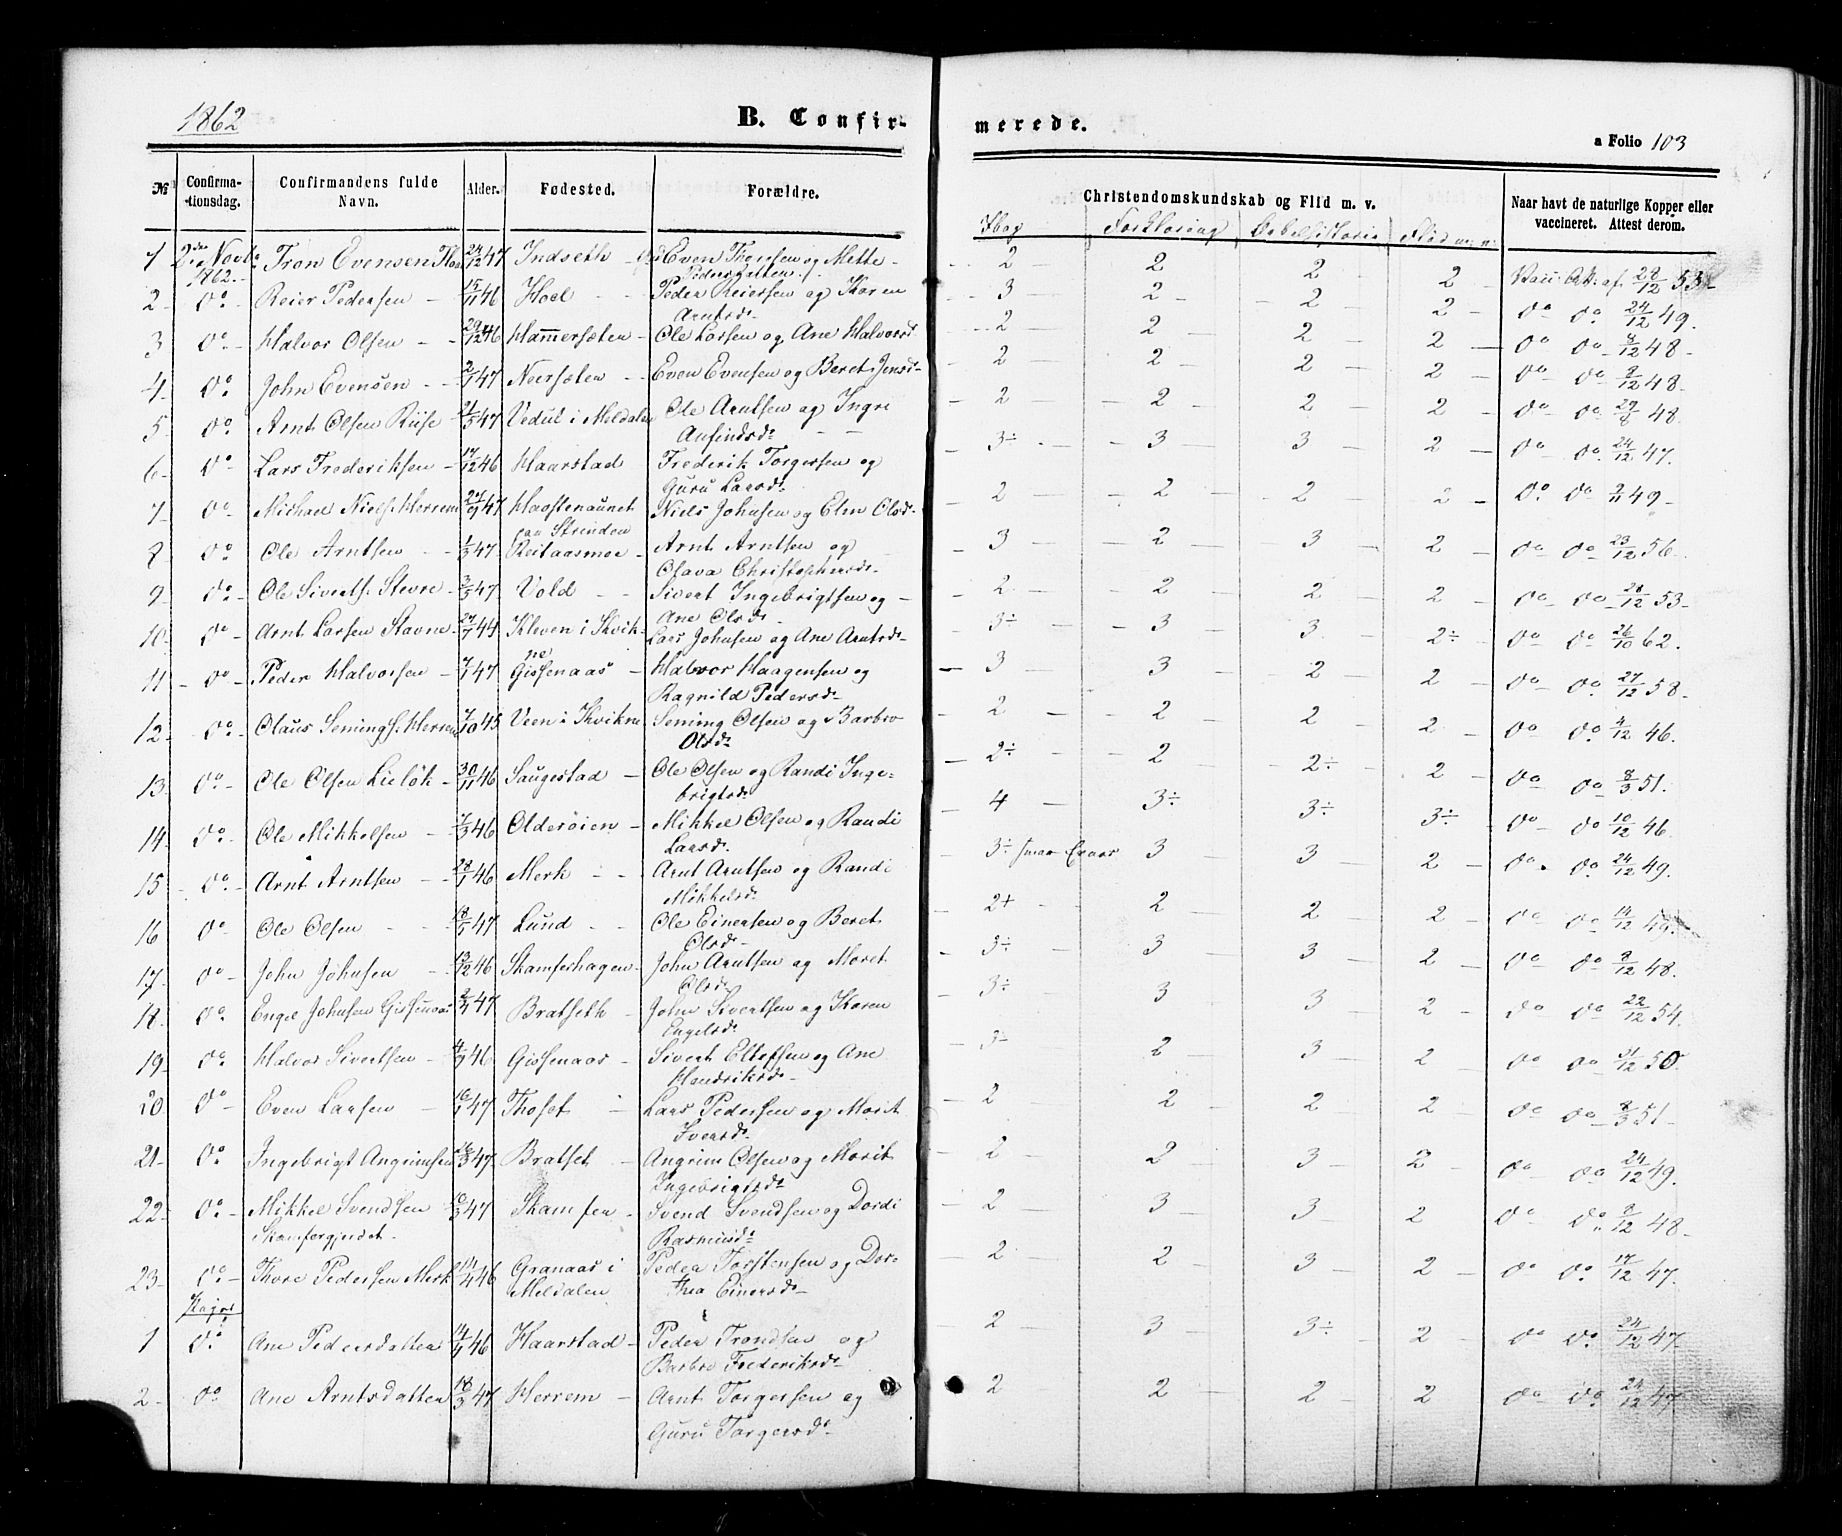 1862
B. Confir-
merede.
a Folio 103
№ Confirma-tionsdag. Confirmandens fulde Navn. Alder. Fødested. Forældre. Christendomskundskab og Flid m. v. Naar havt de naturlige Kopper eller vaccineret. Attest derom.
Forklaring Bibelhistorie Flid
1 2den Novbr 1862. Tron Evensen 24/12 47 Indseth Even Thoresen og Mette Pedersdatter 2 2 2 2 Vacc. Att. af 28/12 53
2 Do Reier Pedersen 15/11 46 Hoel Peder Reiersen og Karen Arntsdr 3 2 2 2 do do 24/12 49.
3 Do Halvor Olsen 29/12 46 Hammersæten Ole Larsen og Ane Halvorsd 2 2 2 2 do do 8/12 48
4 Do John Evensen 2/1 47 Neersæten Even Evensen og Beret Jensd 2 2 2 2 do do 8/12 48
5 Do Arnt Olsen Riise 21/5 47 i Meldalen Ole Arntsen og Ingri Anfindsdr 2 2 2 2 do do 29/8 48
6 Do Lars Frederiksen 17/12 46 Haarstad Frederik Torgersen og Guru Larsdr 3÷ 3 3 2 do do 24/12 47.
7 Do Michael Niels. Herrem 47 paa Strinden Niels Johnsen og Elen Olsdr 2 2 2 2 do do 2/11 49
8 Do Ole Arntsen 1/3 47 Reitaasmoe Arnt Arntsen og Olava Christophersdr 3 2 3 2 do do 23/12 56
9 Do Ole Siverts. Stevre 3/5 47 Vold Sivert Ingebrigtsen og Ane Olsdr 2 2 2 2 do do 28/12 53
10. Do Arnt Larsen Stavne 44 Kleven i Kvikne Lars Johnsen og Ane Arntsdr 3÷ 3 3 2÷ do do 26/10 62.
11 Do Peder Halvorsen 7/1 47 Gissenaas Halvor Haagensen og Ragnild Pedersdr 3 3 2 2 do do 27/12 58
12 Do Claus Semings. Herrem 7/10 45 Veen i Kvikne Seming Olsen og Barbro Olsdr 2 2 2 2 do do 4/12 46.
13 Do Ole Olsen Lieløk 30/11 46 Saugestad Ole Olsen og Randi Ingebrigtsdr 2÷ 2 2÷ 2 do do 8/3 51.
14 Do Ole Mikkelsen 7/3 46 Olderøien Mikkel Olsen og Randi Larsdr 4 3÷ 3÷ 3÷ do do 10/12 46
15 Do Arnt Arntsen 28/1 46 Merk Arnt Arntsen og Randi Mikkelsdr 3÷ 3 3 2 do do 24/12 49.
16 Do Ole Olsen 47 Lund Ole Einersen og Beret Olsdr 2+ 2 2 2 do do 14/12 49.
17 Do John Johnsen 13/12 46 Skamferhagen John Arntsen og Moret Olsdr 3÷ 3 3 2 do do 8/12 48.
18 Do Engel Johnsen Gissenaas 47 Bratseth John Sivertsen og Karen Engelsdr 3÷ 3 3 2 do do 22/12 54.
19 Do Halvor Sivertsen 4/9 46 Gissenaas Sivert Ellefsen og Ane Hendriksdr 3 2 3 2 do do 21/12 50
20 Do Even Larsen 16/1 47 Thoset Lars Pedersen og Morit Iversdr 2 2 2 2 do do 8/3 51
21 Do Ingebrigt Angrimsen 47 Bratset Angrim Olsen og Morit Ingebrigtsdr 2 2 3 2 do do 24/12 49.
22 Do Mikkel Svendsen Skamfergjerdet 16/3 47 Skamfer Svend Svendsen og Dordi Rasmusdr 2 3 3 2 do do 8/12 48
23 Do Thore Pedersen Merk 46 Granaas i Meldalen Peder Torstensen og Dorthea Einersdr 2 2 3 2 do do 17/12 47.
1 Do Ane Pedersdatter 46 Haarstad Peder Trondsen og Barbro Frederiksdr 2 3 3÷ 2 do do 24/12 47
2 Do Ane Arntsdatter 18/3 47 Herrem Arnt Torgersen og Guru Torgersdr 2 2 2 2 do do 24/12 47